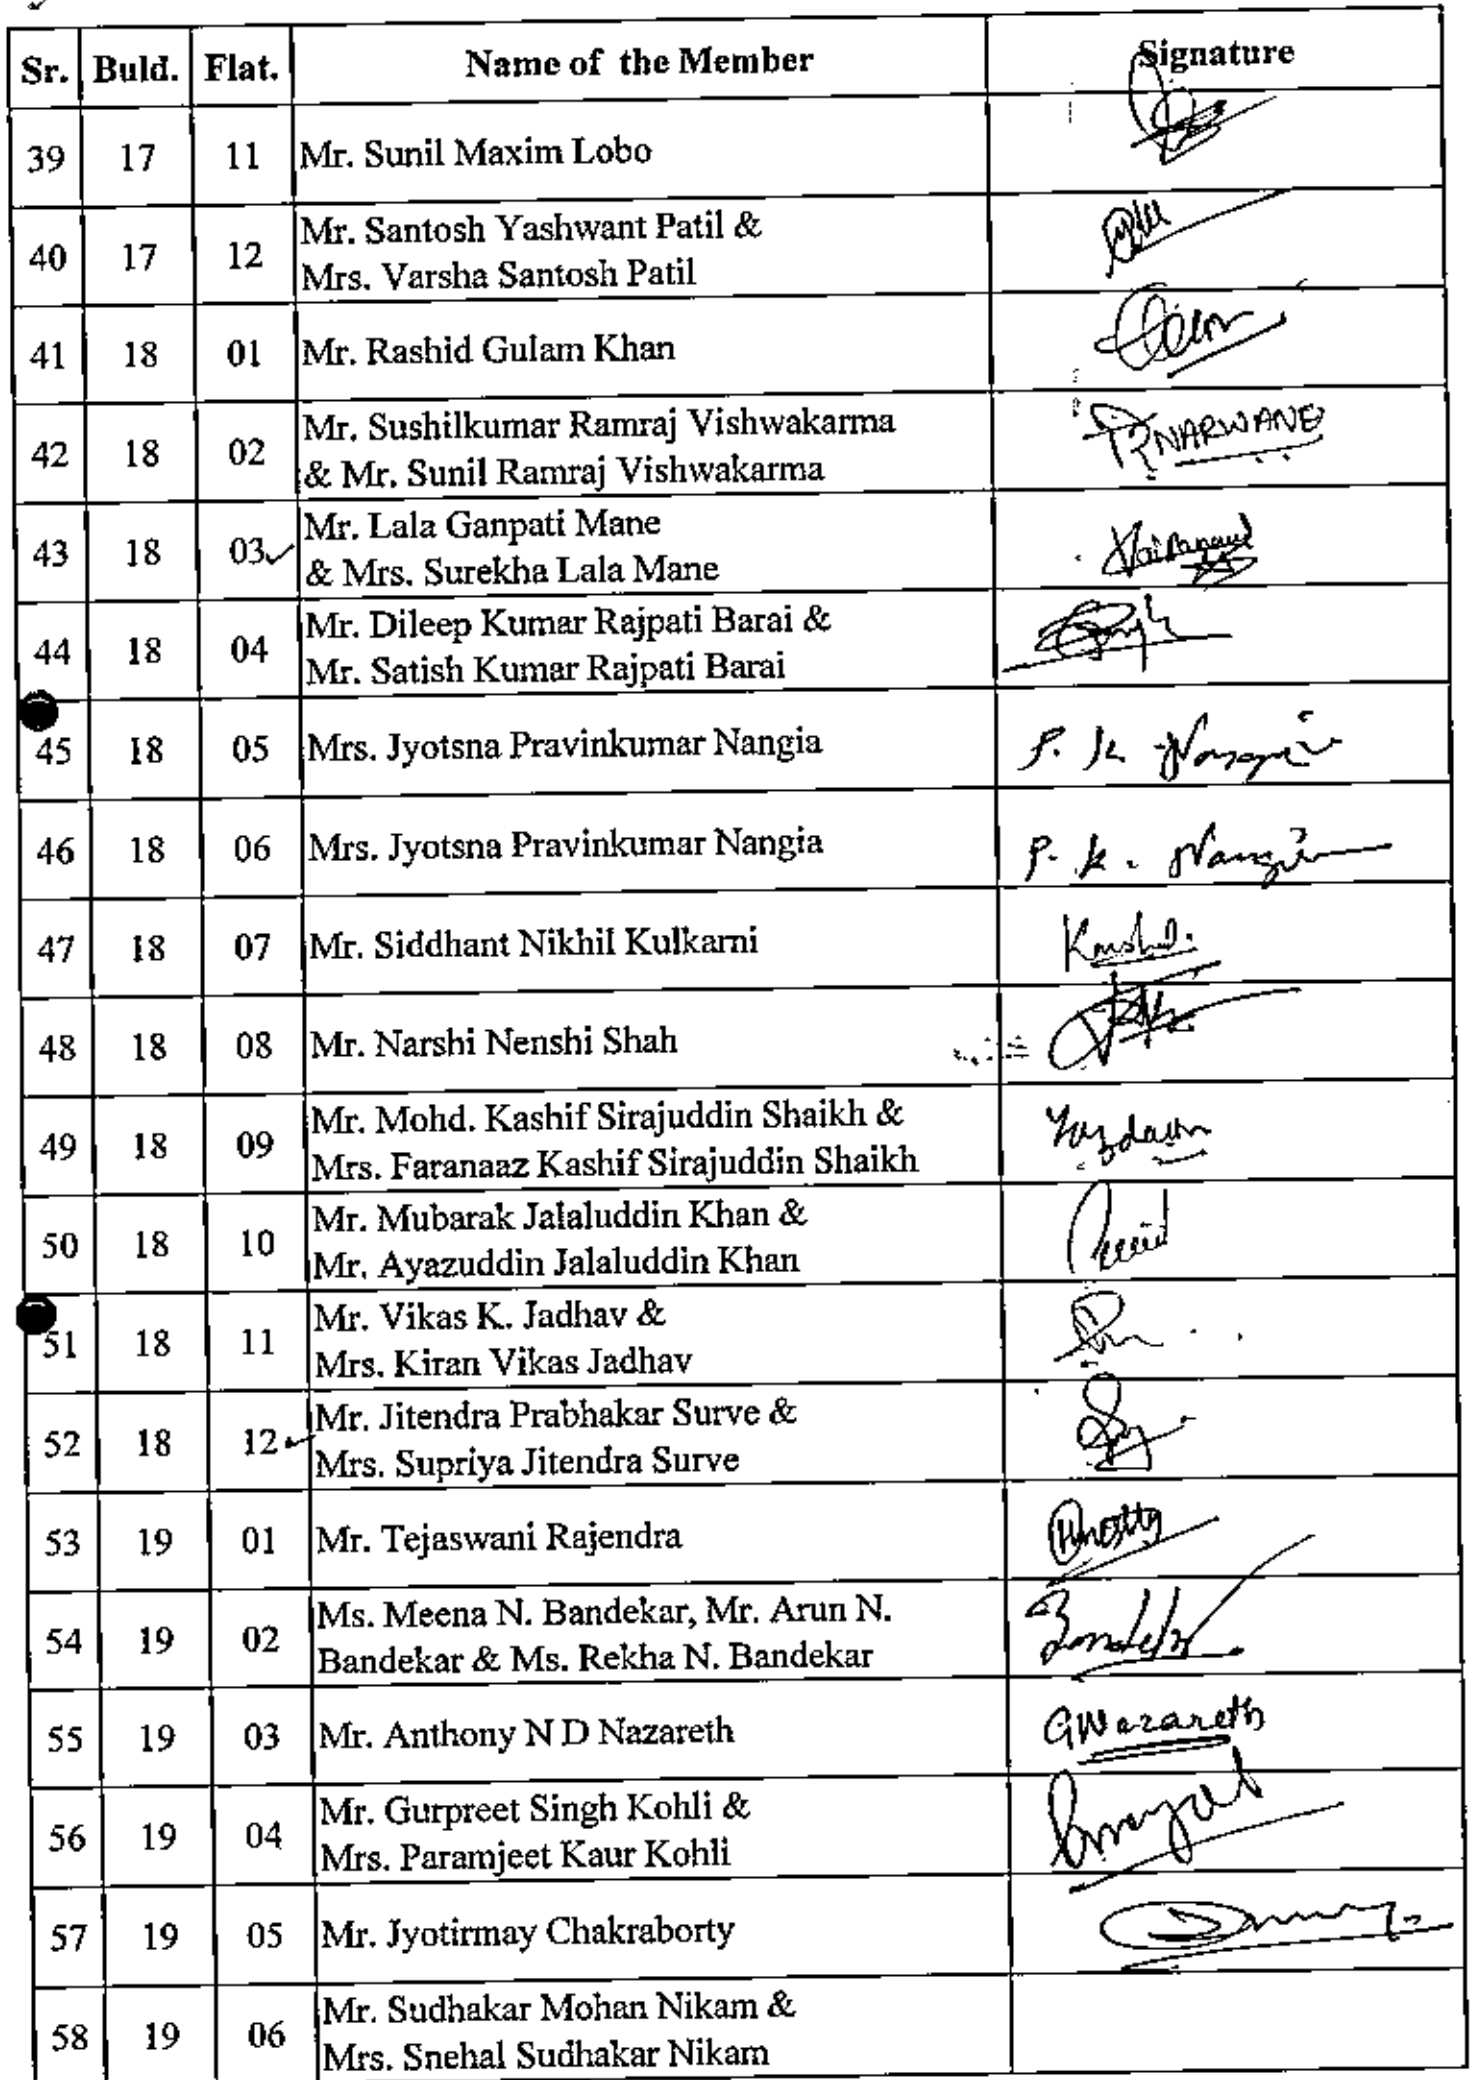 Sr. Buld. Flat. Name of the Member Signature
39 17 11 Mr. Sunil Maxim Lobo
40 17 12 Mr. Santosh Yashwant Patil &
Mrs. Varsha Santosh Patil
41 18 01 Mr. Rashid Gulam Khan
42 18 02 Mr. Sushilkumar Ramraj Vishwakarma
& Mr. Sunil Ramraj Vishwakarma
NARWANE
43 18 03 Mr. Lala Ganpati Mane
& Mrs. Surekha Lala Mane
44 18 04 Mr. Dileep Kumar Rajpati Barai &
Mr. Satish Kumar Rajpati Barai
45 18 05 Mrs. Jyotsna Pravinkumar Nangia P. K. Nangia
46 18 06 Mrs. Jyotsna Pravinkumar Nangia P. K. Nangia
47 18 07 Mr. Siddhant Nikhil Kulkarni
48 18 08 Mr. Narshi Nenshi Shah
49 18 09 Mr. Mohd. Kashif Sirajuddin Shaikh &
Mrs. Faranaaz Kashif Sirajuddin Shaikh
50 18 10 Mr. Mubarak Jalaluddin Khan &
Mr. Ayazuddin Jalaluddin Khan
51 18 11 Mr. Vikas K. Jadhav &
Mrs. Kiran Vikas Jadhav
52 18 12 Mr. Jitendra Prabhakar Surve &
Mrs. Supriya Jitendra Surve
53 19 01 Mr. Tejaswani Rajendra
54 19 02 Ms. Meena N. Bandekar, Mr. Arun N.
Bandekar & Ms. Rekha N. Bandekar
55 19 03 Mr. Anthony N D Nazareth GNazareth
56 19 04 Mr. Gurpreet Singh Kohli &
Mrs. Paramjeet Kaur Kohli
57 19 05 Mr. Jyotirmay Chakraborty
58 19 06 Mr. Sudhakar Mohan Nikam &
Mrs. Snehal Sudhakar Nikam